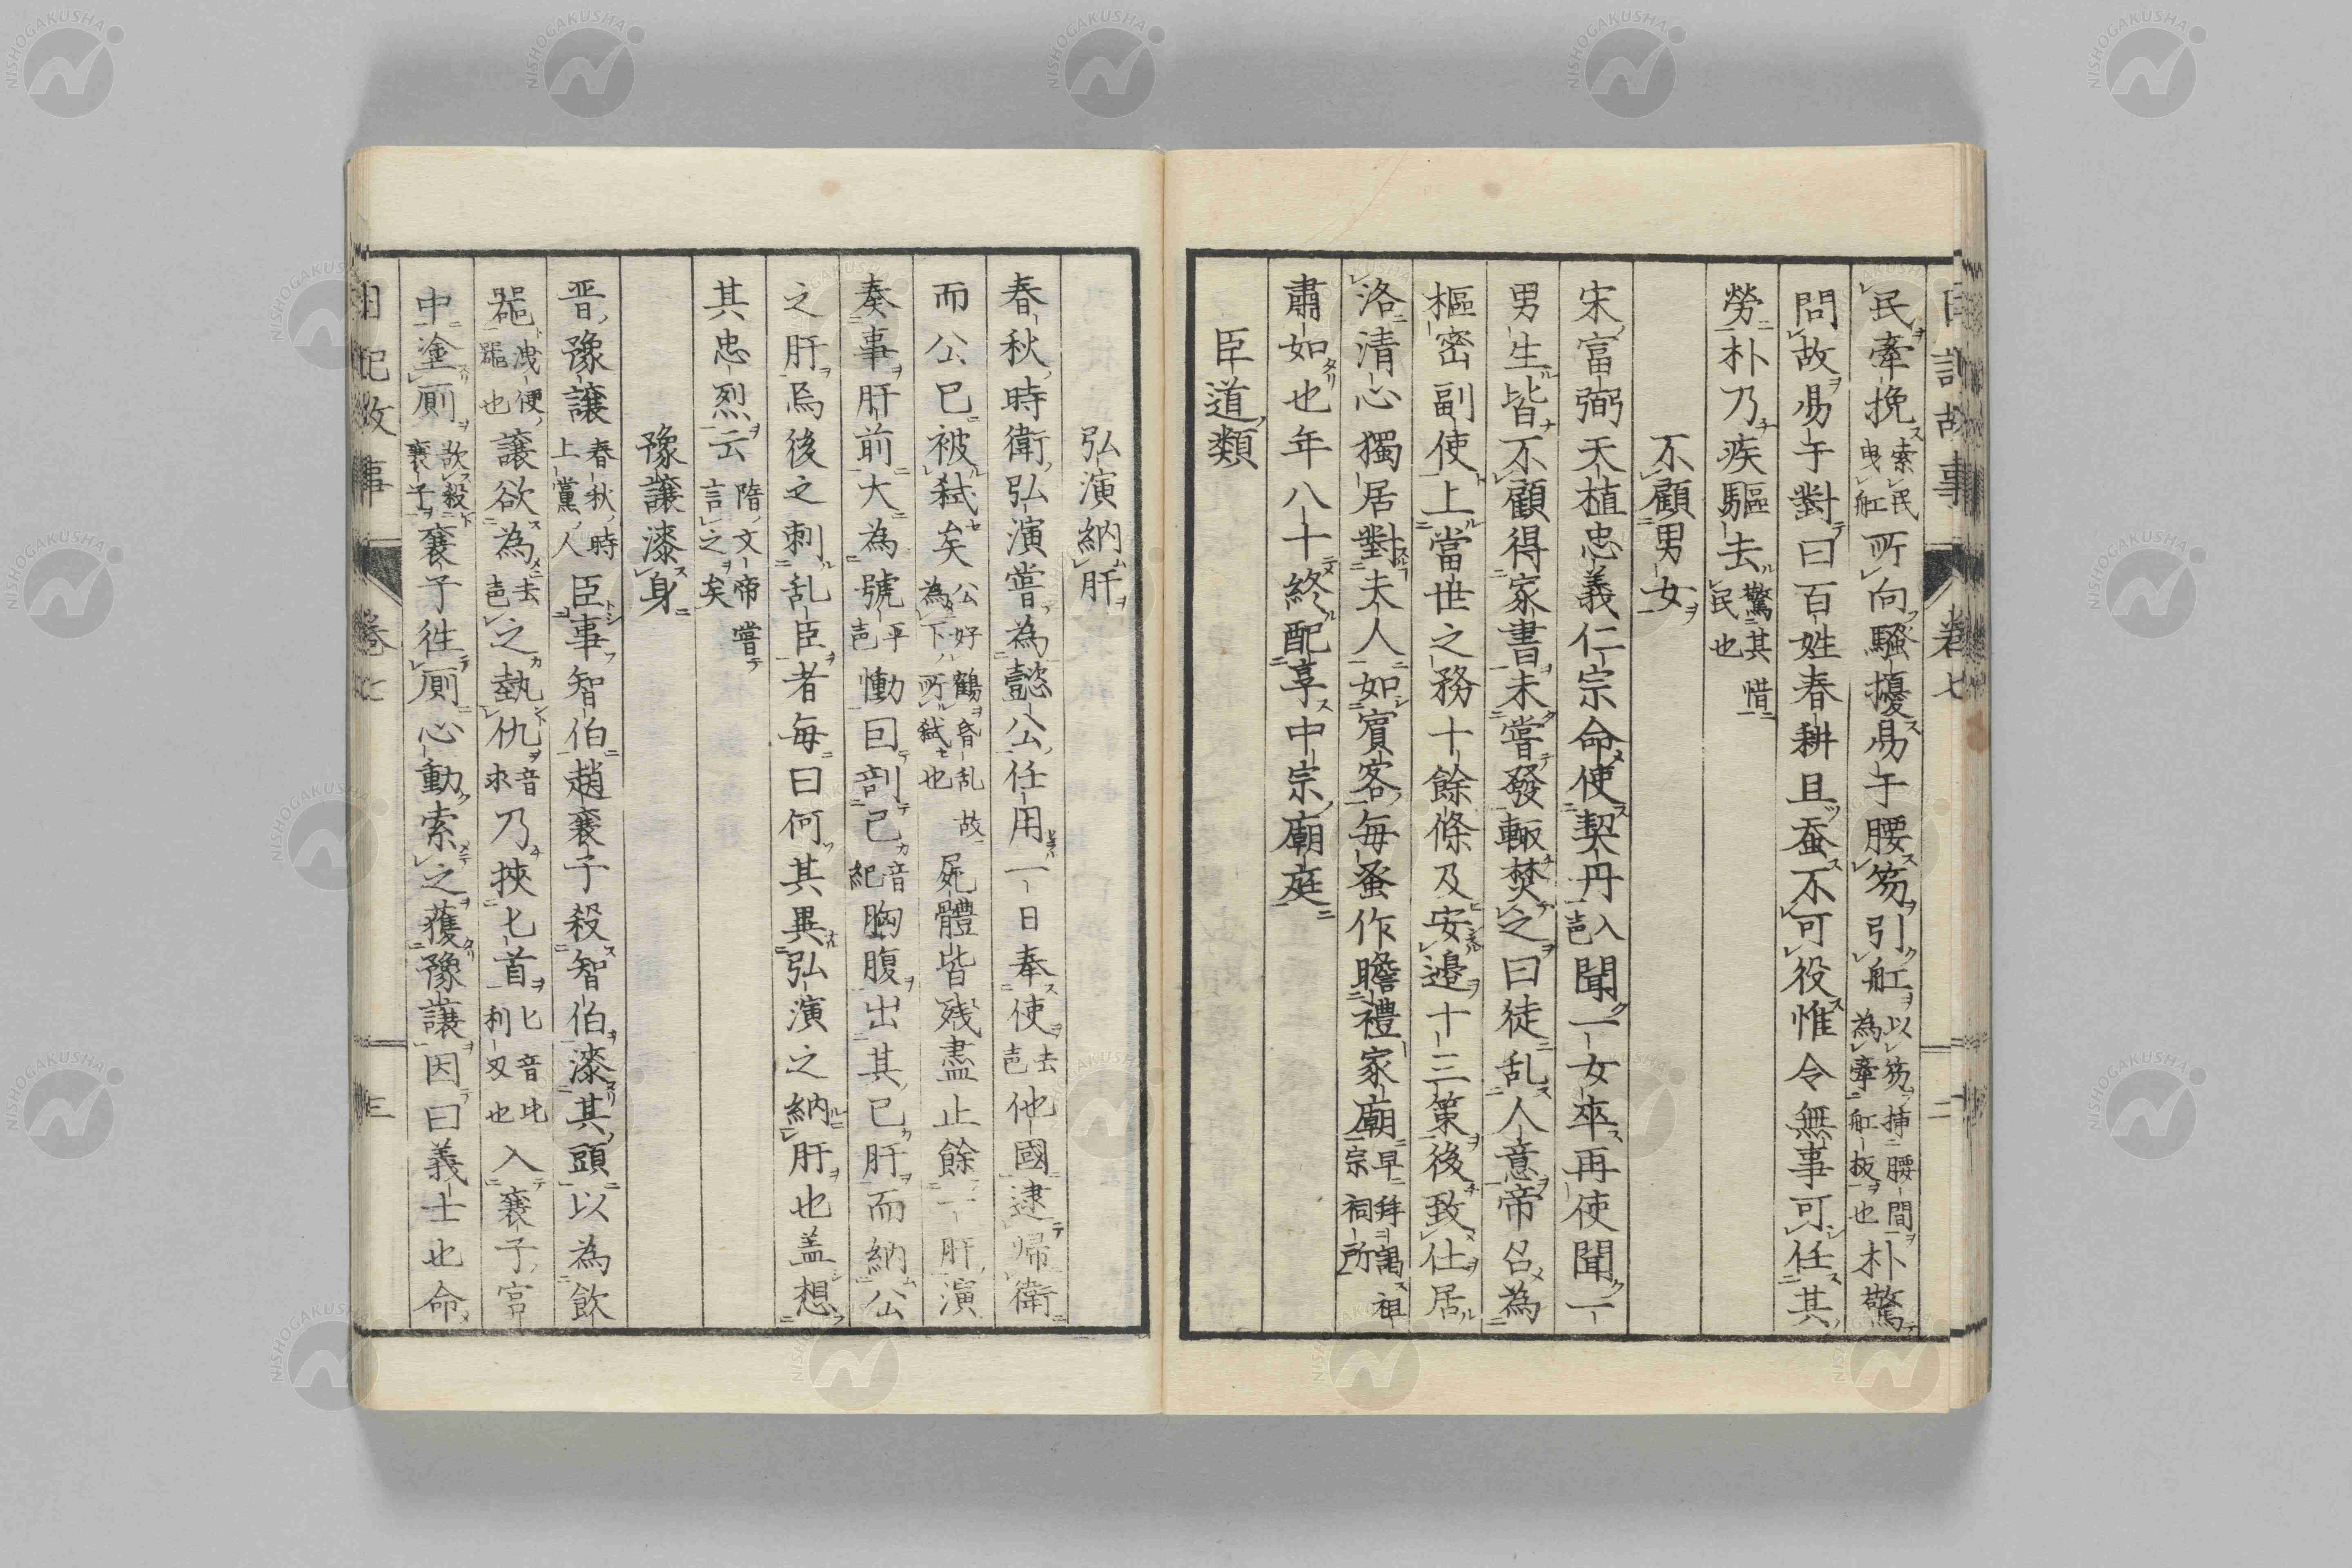 日記故事 卷七 二
民牽挽索民曳舡所向騷擾易于腰笏引舡以笏挿腰間為牽舡扳也朴驚
問故易于對曰百姓春耕且蚕不可役惟令無事可任其
勞朴乃疾驅去驚其惜民也
不顧男女
宋富弼天植忠義仁宗命使契丹入声聞一女卒再使聞一
男生皆不顧得家書未嘗發輙焚之曰徒乱人意帝召為
樞密副使上當世之務十餘條及安邉十三策後致仕居
洛清心獨居對夫人如賓客每蚤作瞻禮家廟早拜謁祖宗祠所
肅如也年八十終配享中宗廟庭
臣道類
弘演納肝
春秋時衛弘演嘗為懿公任用一日奉使去声他國逮帰衛
而公已被弑矣公好鶴昏乱故為下所弑也屍體皆残盡止餘一肝演
奏事肝前大為號平声慟囙剖己音紀胸腹出其己肝而納公
之肝焉後之刺乱臣者每曰何其異弘演之納肝也盖想
其忠烈云隋文帝嘗言之矣
豫讓漆身
晋豫讓春秋時上黨人臣事智伯趙襄子殺智伯漆其頭以為飲
噐洩便噐也讓欲為去声之執仇音求乃挾匕首匕音比利刄也入襄子宮
中塗厠欲殺襄子襄子徃厠心動索之獲豫讓因曰義士也命
日記故事 卷七 三